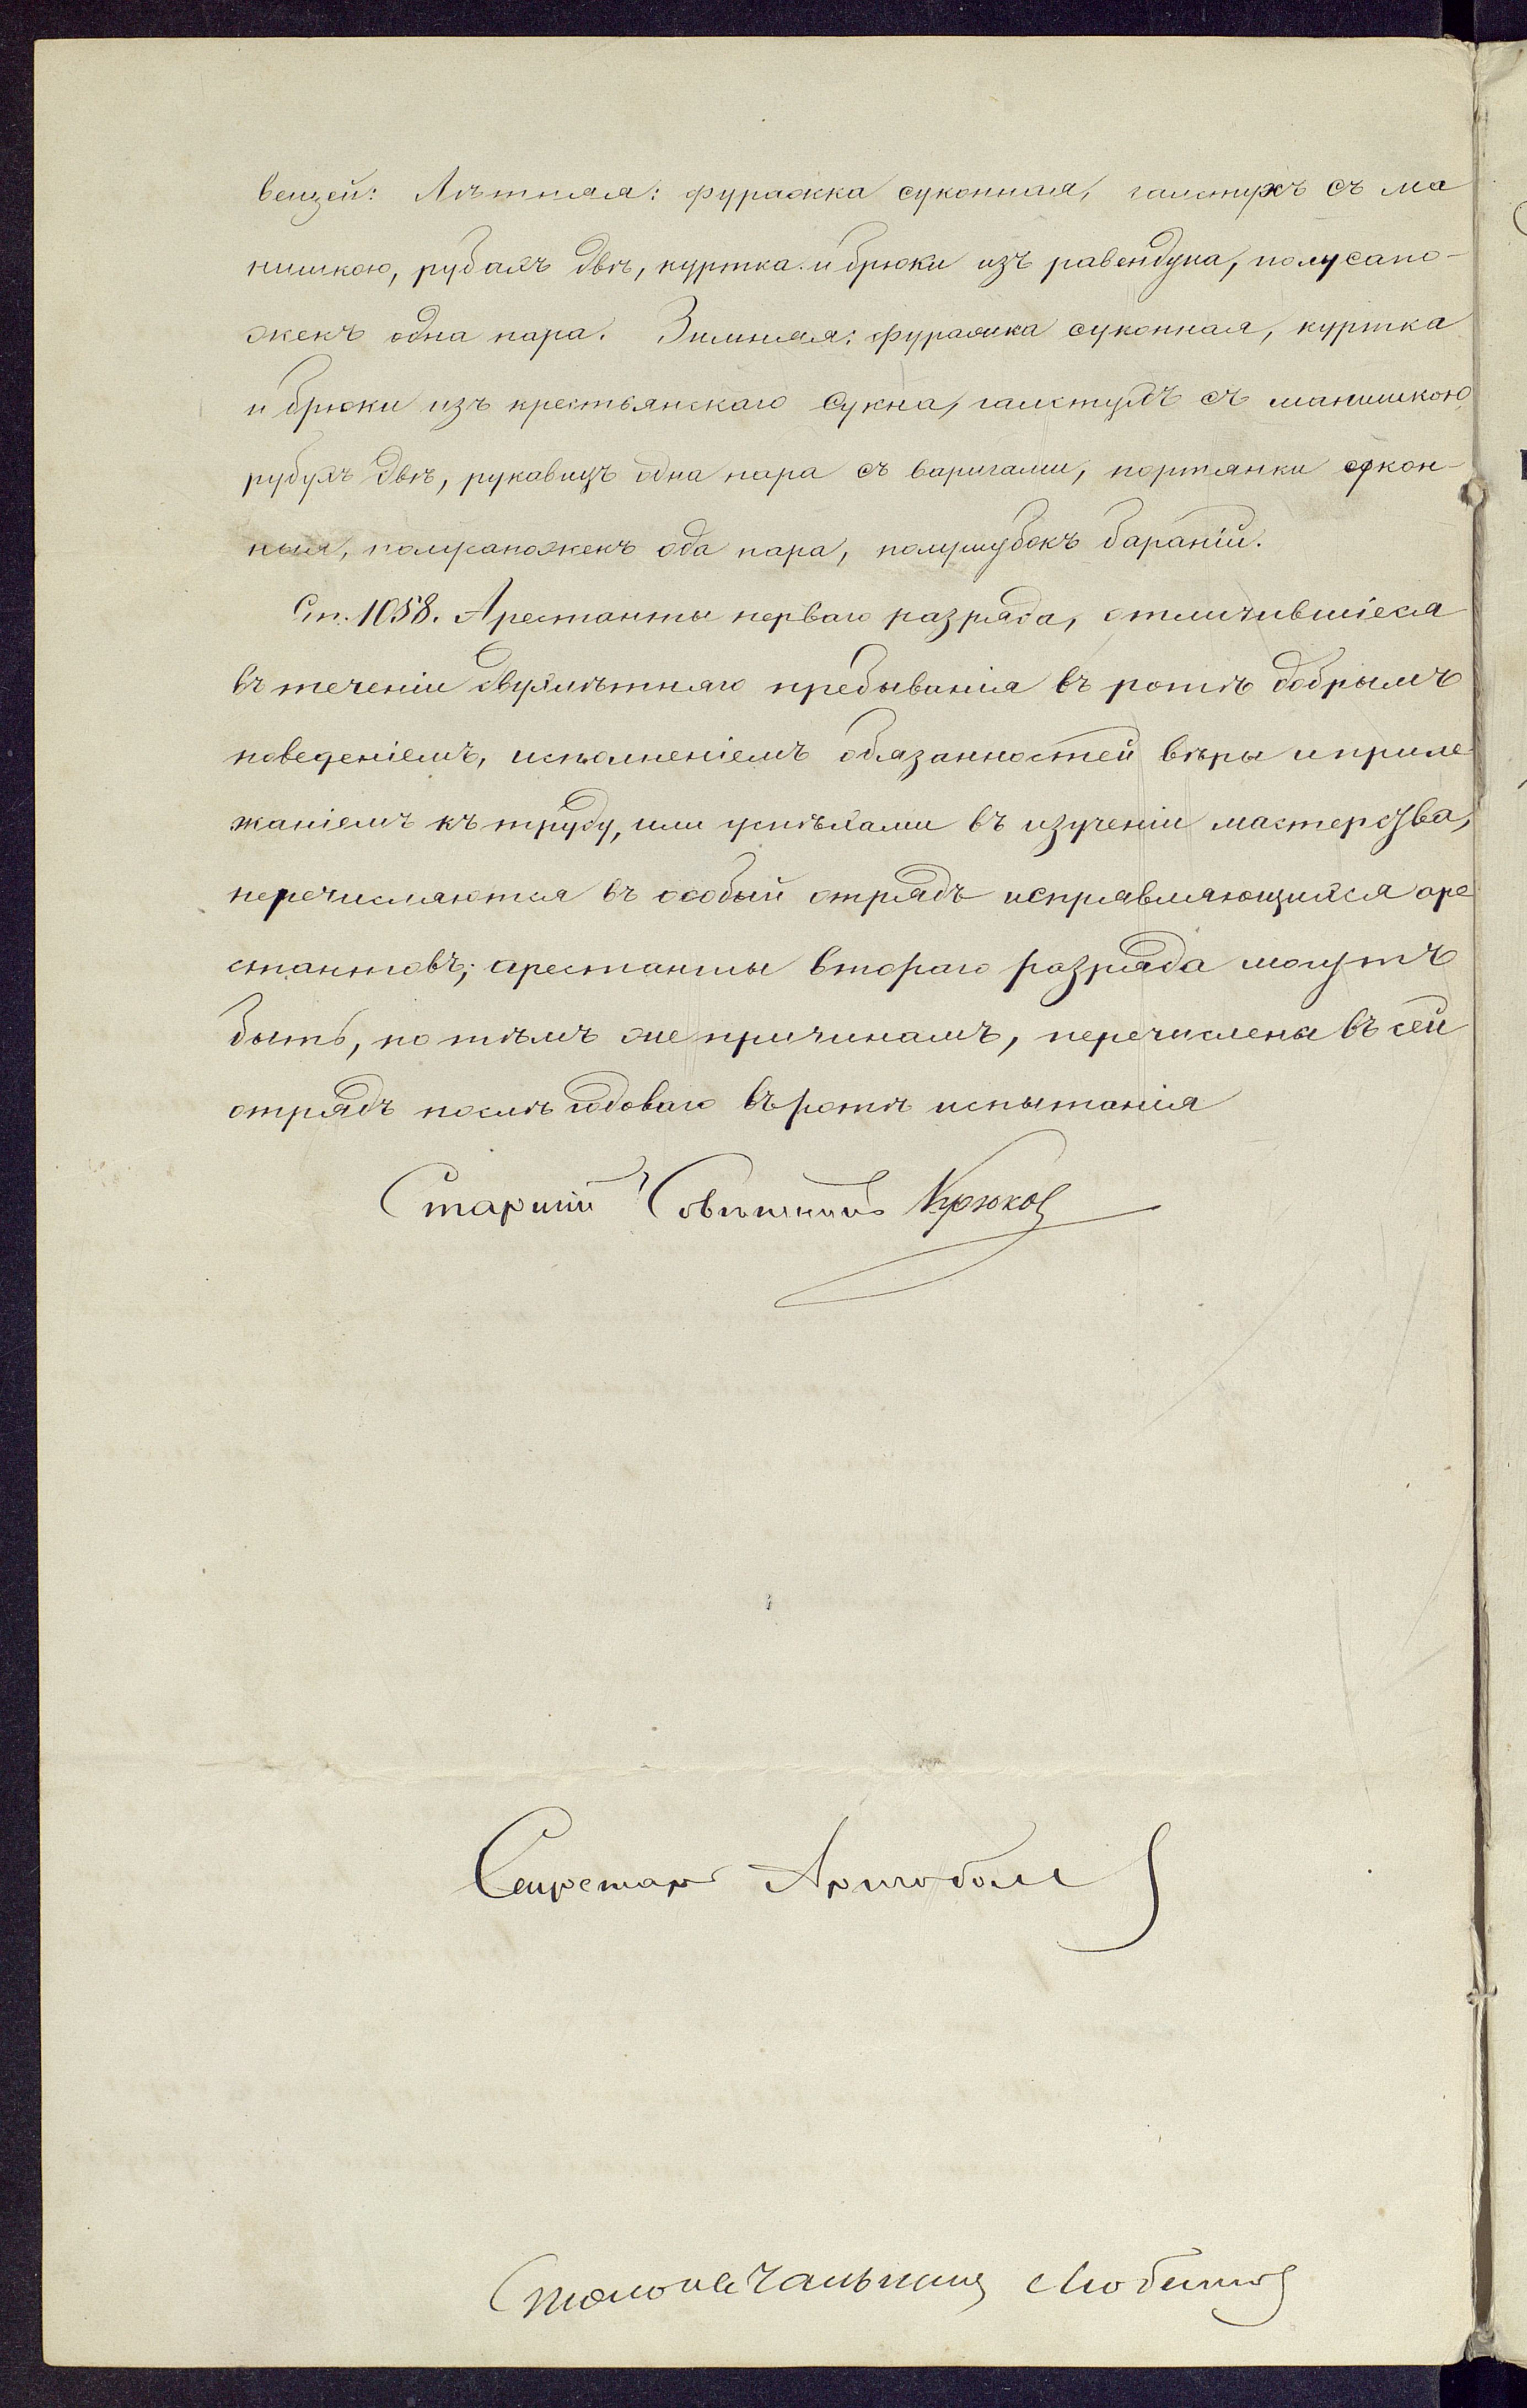 вещей: Лѣтняя: фуражка суконная, галстухъ съ ма
нишкою, рубахъ двѣ, куртка и брюки изъ равендука, полусапо-
жекъ одна пара. Зимняя: фуражка суконная, куртка
и брюки изъ крестьянскаго сукна, галстухъ съ манишкою
рубухъ двѣ, рукавицъ одна пара съ варигами, портянки сукон-
ныя, полусапожекъ ода пара, полушубокъ бараній.
Ст. 1058. Арестанты перваго разряда, отличившіеся
въ теченіи двухлѣтняго пребыванія въ ротѣ добрымъ
поведеніемъ, исполненіемъ обязанностей вѣры и приле
жаніемъ къ труду, или успѣхами въ изученіи мастерства,
перечисляются въ особый отрядъ исправляющихся аре
стантовъ; арестанты втораго разряда могутъ
быть, по тѣмъ же причинамъ, перечислены въ сей
отрядъ послѣ годоваго въ ротѣ испытанія
Старшій Совѣтникъ Крюковъ
Секретарь
Столоначальникъ Любимовъ